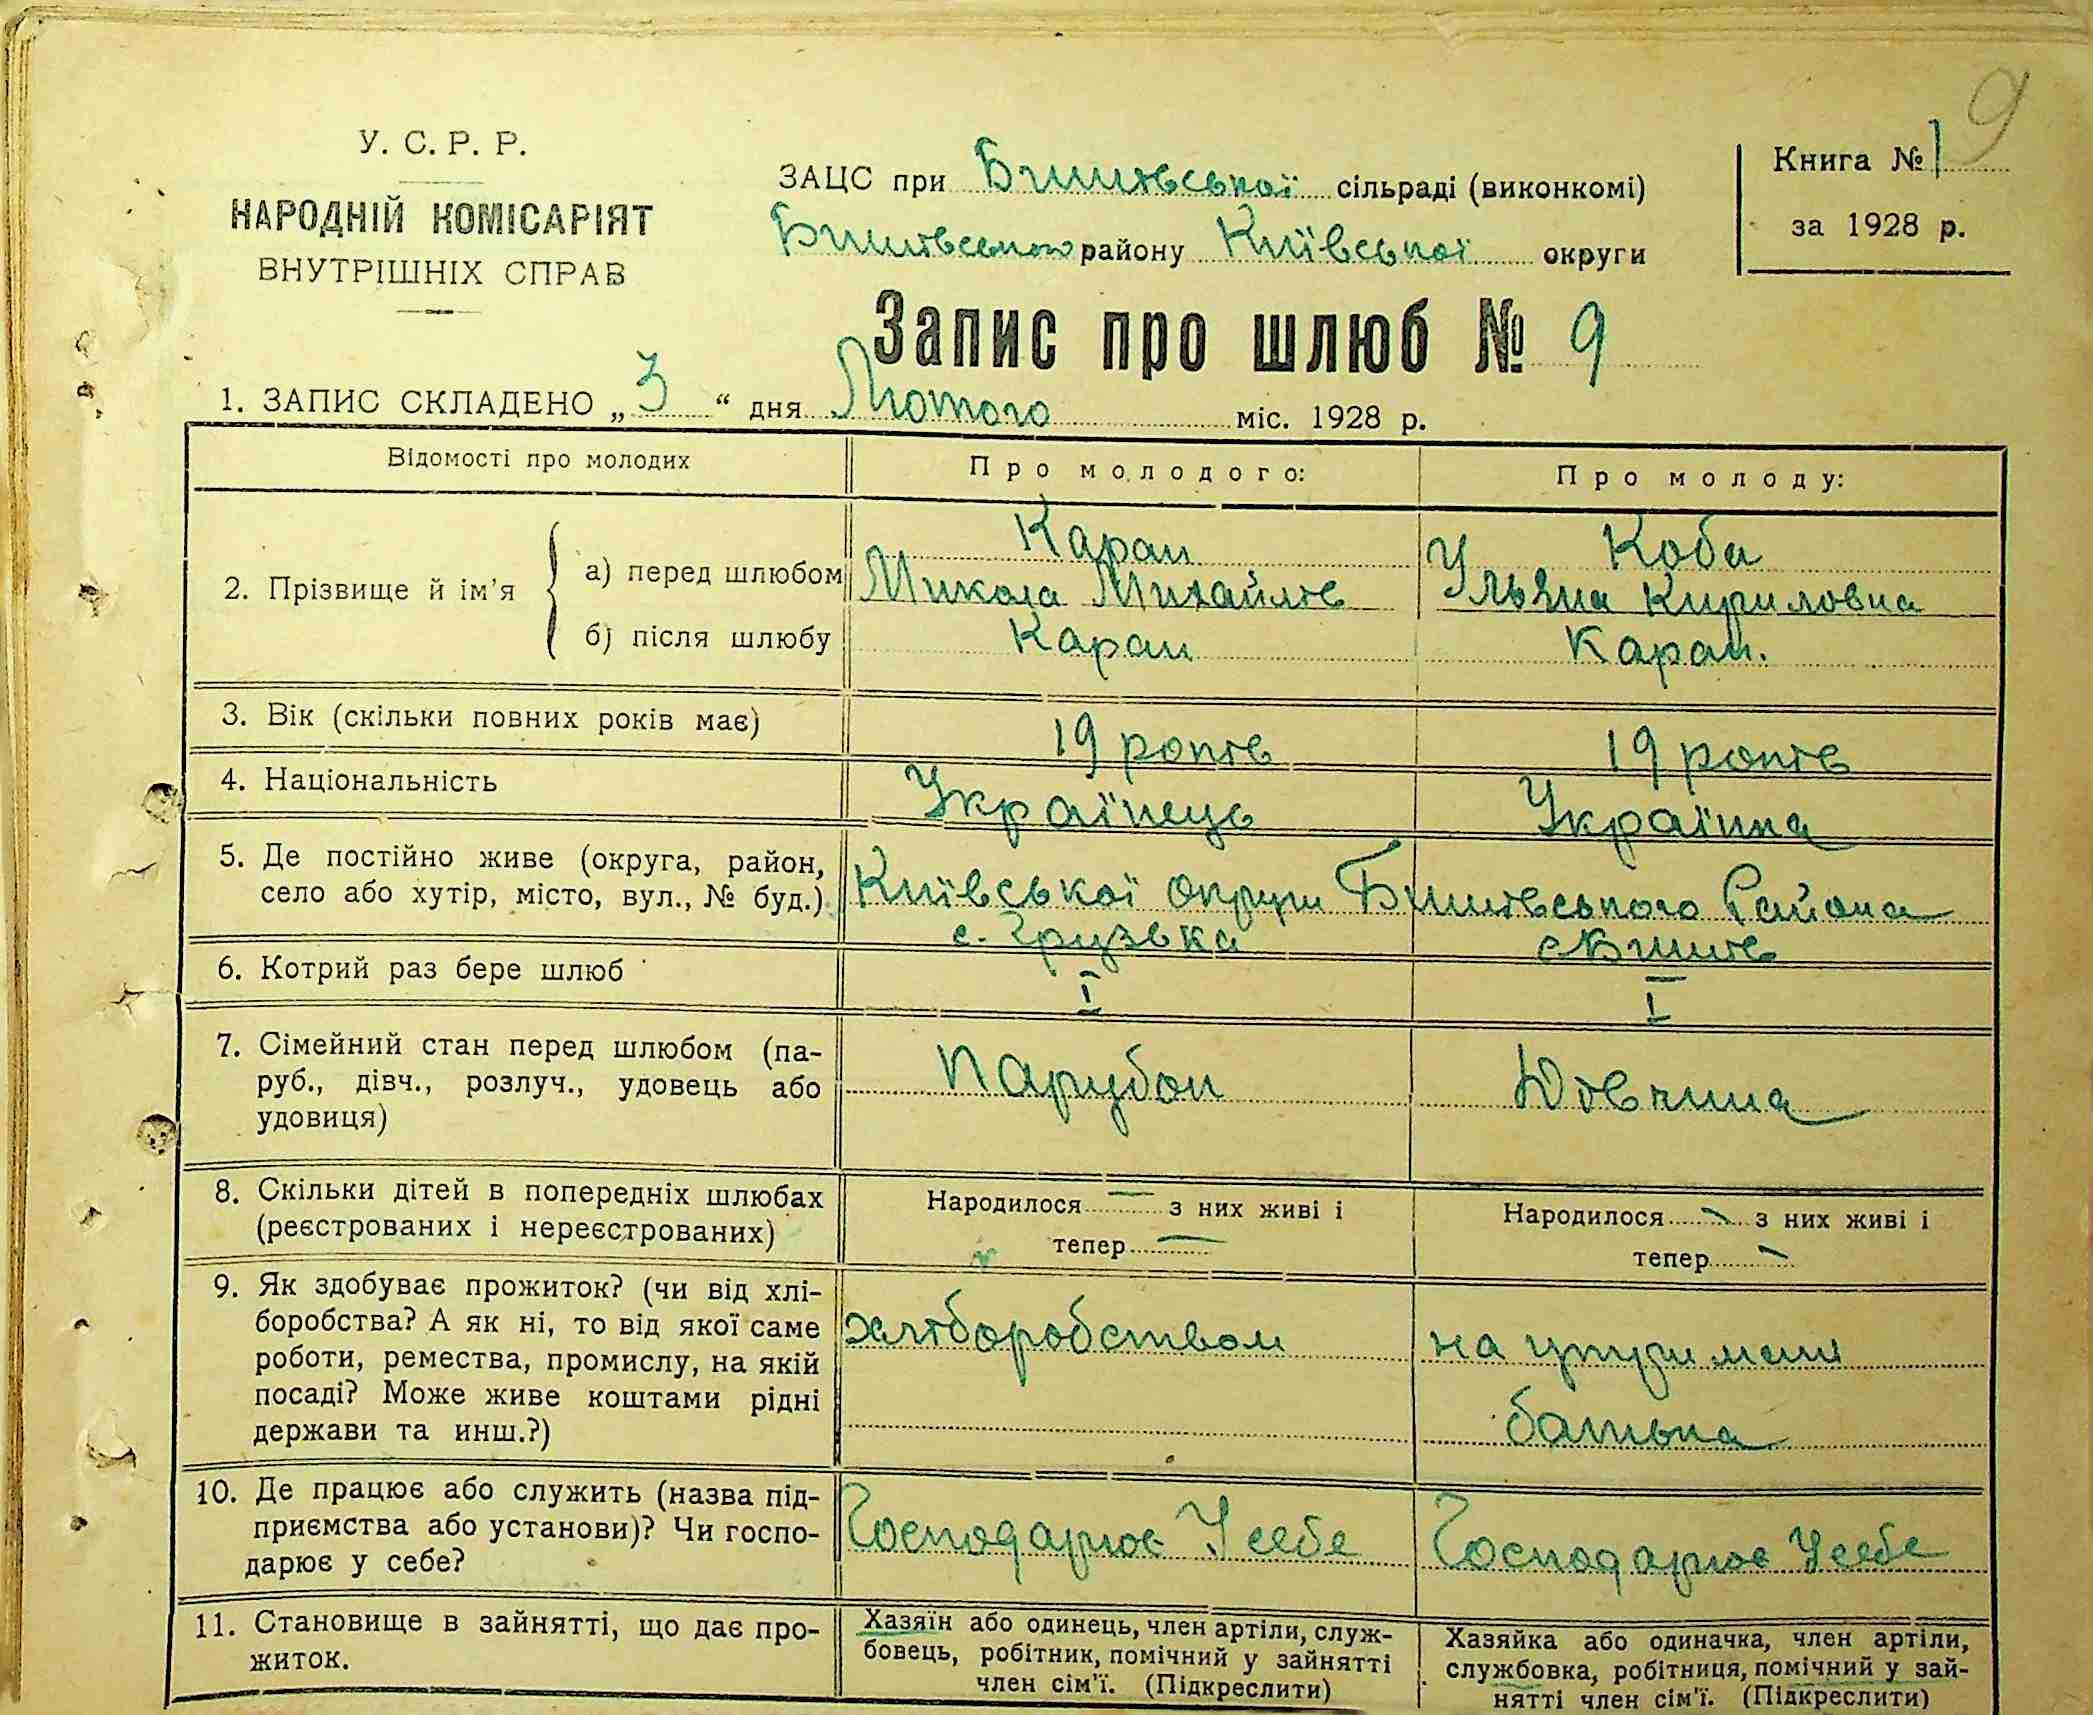 9
У. С. Р. Р.
НАРОДНІЙ КОМІСАРІЯТ
ВНУТРІШНІХ СПРАВ
ЗАЦС при Бишівської сільраді (виконкомі)
Бишівського району Київської округи
Книга № 1
за 1928 р.
Запис про шлюб № 9
1. ЗАПИС СКЛАДЕНО „3“ дня Лютого міс. 1928 р.
Відомості про молодих
Про молодого:
Про молоду:
2. Прізвище й ім'я
а) перед шлюбом
Каран
Микола Михайлів
Коба
Ульяна Кириловна
б) після шлюбу
Каран
Каран.
3. Вік (скільки повних років має)
19 років
19 років
4. Національність
Українець
Українка
5. Де постійно живе (округа, район,
село або хутір, місто, вул., № буд.)
Київської округи Бишівського Района
с. Грузька
с Бишів
6. Котрий раз бере шлюб
I
I
7. Сімейний стан перед шлюбом (па-
руб., дівч., розлуч., удовець або
удовиця)
Парубок
Дівчина
8. Скільки дітей в попередніх шлюбах
(реєстрованих і нереєстрованих)
Народилося — з них живі і
тепер —
Народилося — з них живі і
тепер —
9. Як здобуває прожиток? (чи від хлі-
боробства? А як ні, то від якої саме
роботи, ремества, промислу, на якій
посаді? Може живе коштами рідні
держави та инш.?)
хліборобством
на утримані
батька
10. Де працює або служить (назва під-
приємства або установи)? Чи госпо-
дарює у себе?
Господарює У себе
Господарює У себе
11. Становище в зайнятті, що дає про-
житок.
Хазяїн або одинець, член артіли, служ-
бовець, робітник, помічний у зайнятті
член сім'ї. (Підкреслити)
Хазяйка або одиначка, член артіли,
службовка, робітниця, помічний у зай-
нятті член сім'ї. (Підкреслити)